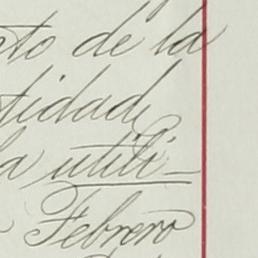 to de la
tidad
la utili-
Febrero